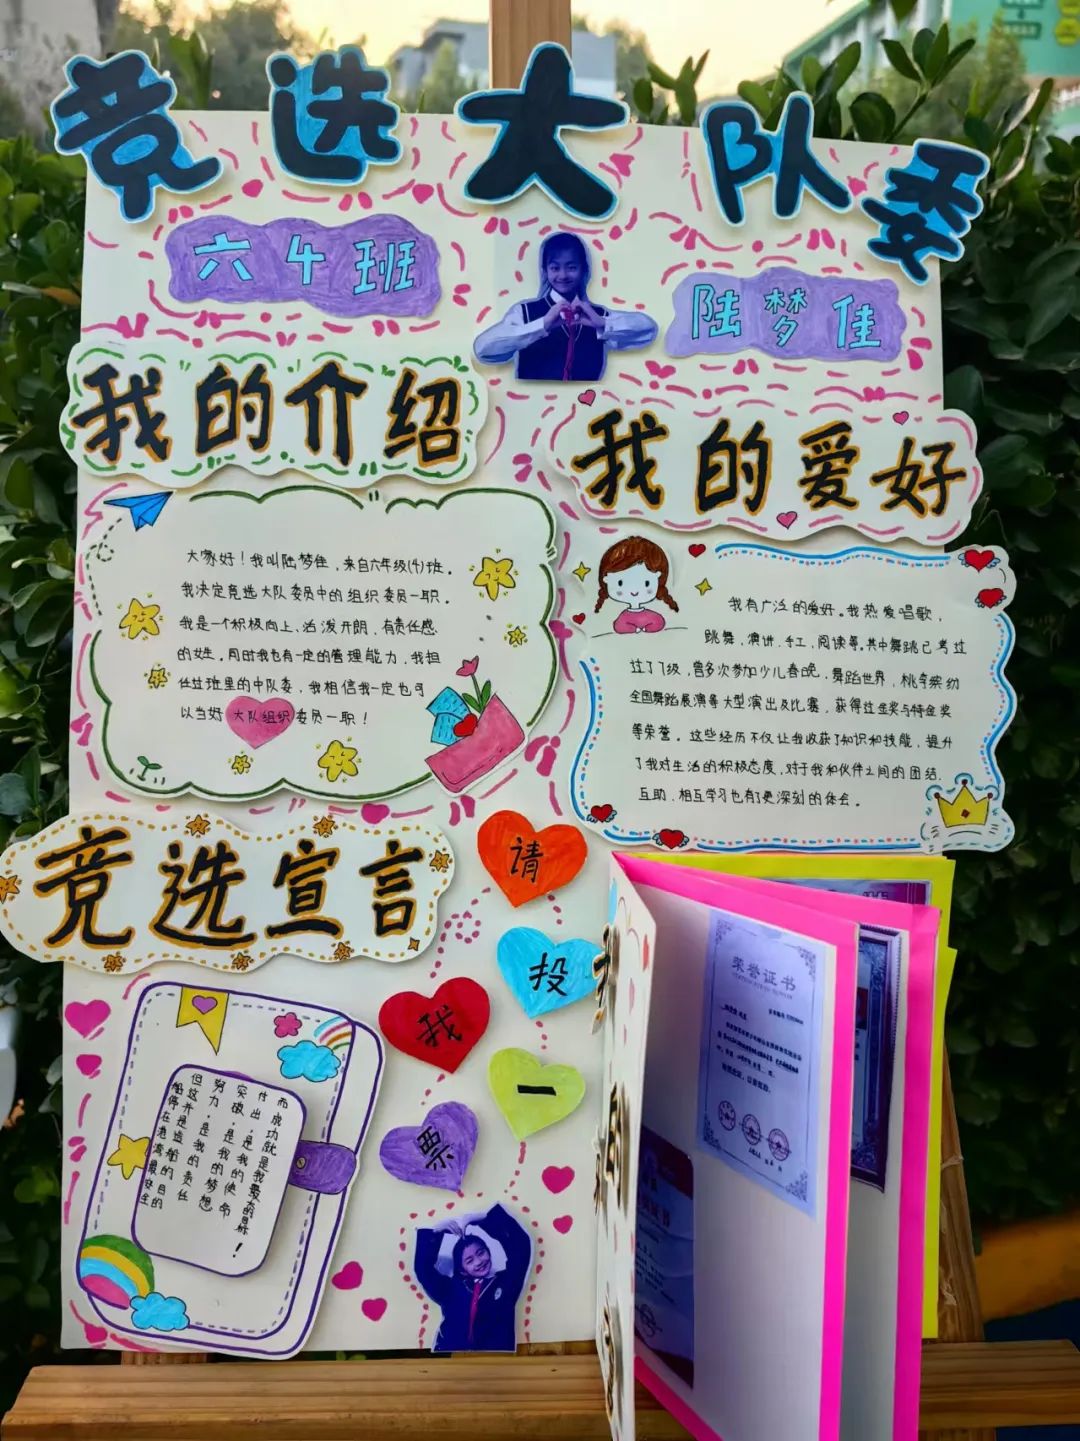 竞选大队委
六4班
陆梦佳
我的介绍
大家好！我叫陆梦佳，来自六年级(4)班。
我决定竞选大队委员中的组织委员一职。
我是一个积极向上、活泼开朗、有责任感
的女生。同时我也有一定的管理能力，我担
任过班里的中队委，我相信我一定也可
以当好大队组织委员一职！
我的爱好
我有广泛的爱好。我热爱唱歌，
跳舞、演讲、手工、阅读等。其中舞蹈已考过
过了7级，曾多次参加少儿春晚，舞蹈世界，桃李缤纷
全国舞蹈展演等大型演出及比赛，获得过金奖与特金奖
等荣誉。这些经历不仅让我收获了知识和技能，提升
了我对生活的积极态度，对于我和伙伴之间的团结、
互助、相互学习也有了更深刻的体会。
竞选宣言
船停在港湾是最安全的
但这并是造船的目的
努力，是我的责任
突破，是我的梦想
付出，是我的使命
而成功就是我最大的目标！
请
投
我
一
票
荣誉证书